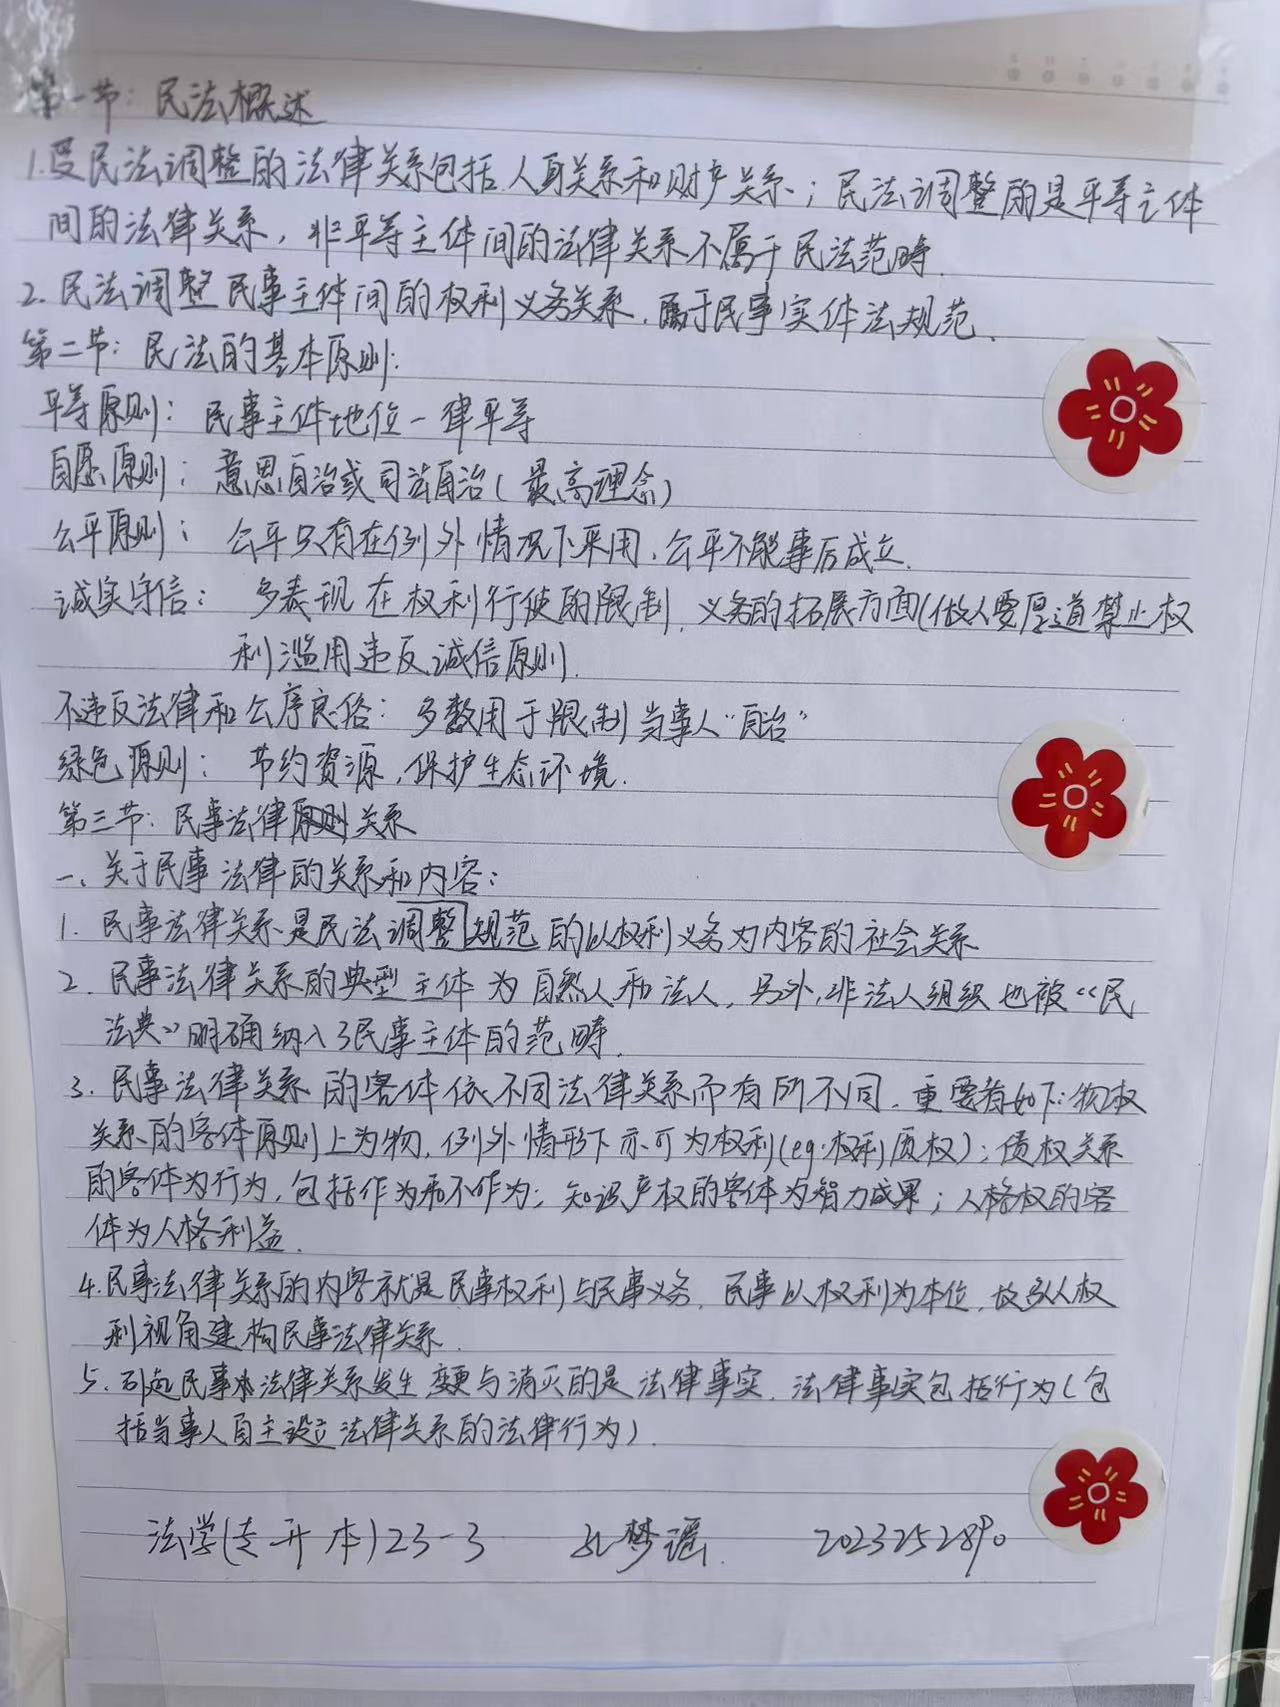 第一节：民法概述
1.受民法调整的法律关系包括人身关系和财产关系；民法调整的是平等主体
间的法律关系，非平等主体间的法律关系不属于民法范畴.
2.民法调整民事主体间的权利义务关系，属于民事实体法规范.
第二节：民法的基本原则：
平等原则：民事主体地位一律平等
自愿原则：意思自治或司法自治(最高理念)
公平原则：公平只有在例外情况下采用，公平不能事后成立.
诚实守信：多表现在权利行使的限制，义务的拓展方面(做人要厚道禁止权
利滥用违反诚信原则.
不违反法律和公序良俗：多数用于限制当事人“自治”
绿色原则：节约资源，保护生态环境.
第三节：民事法律关系
一、关于民事法律的关系和内容：
1.民事法律关系是民法调整规范的以权利义务为内容的社会关系
2.民事法律关系的典型主体为自然人和法人，另外，非法人组织也被《民
法典》明确纳入了民事主体的范畴.
3.民事法律关系的客体依不同法律关系而有所不同，重要者如下：物权
关系的客体原则上为物，例外情形下亦可为权利(eg:权利质权)；债权关系
的客体为行为，包括作为和不作为；知识产权的客体为智力成果；人格权的客
体为人格利益.
4.民事法律关系的内容就是民事权利与民事义务，民事以权利为本位，故以从权
利视角建构民事法律关系.
5.引起民事法律关系发生变更与消灭的是法律事实，法律事实包括行为(包
括当事人自主设立法律关系的法律行为).
法学(专升本)23-3 孔梦谣 2023252890